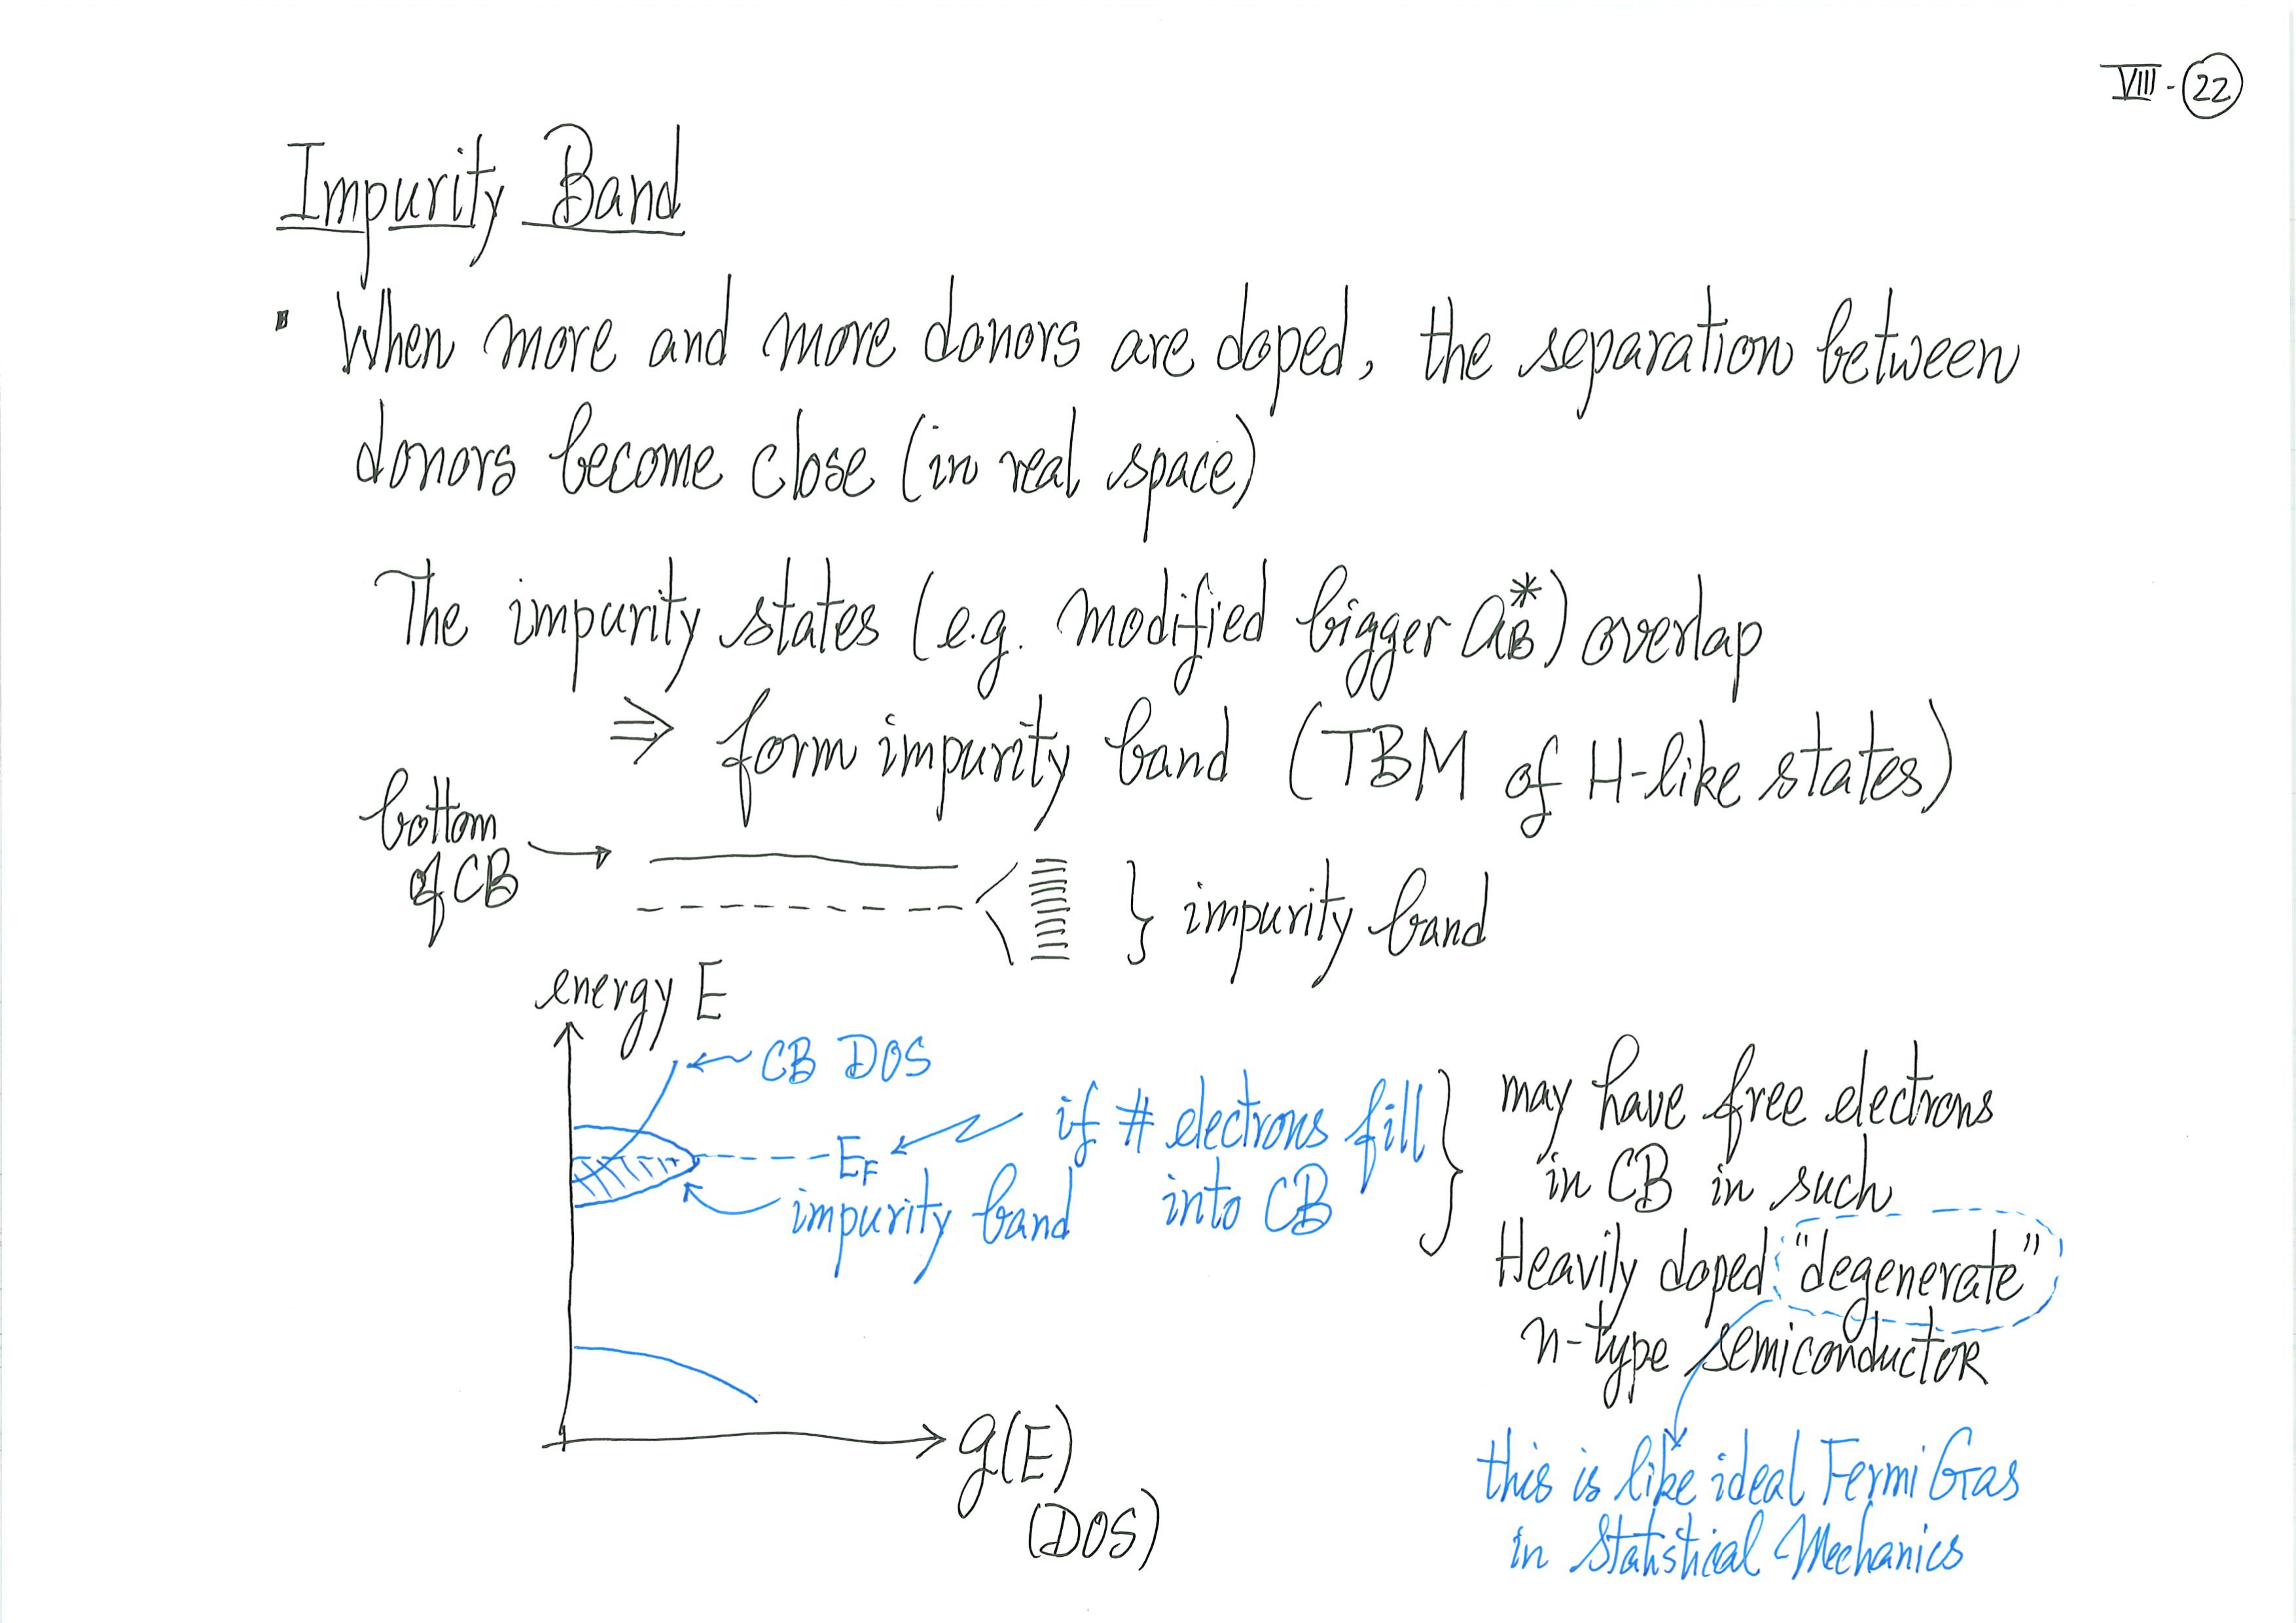 VIII - 22
Impurity Band
▪ When more and more donors are doped, the separation between
donors become close (in real space)
The impurity states (e.g. modified bigger a_B^*) overlap
⇒ form impurity band (TBM of H-like states)
bottom
of CB
} impurity band
energy E
CB DOS
E_F
if # electrons fill
into CB
impurity band
may have free electrons
in CB in such
Heavily doped "degenerate"
n-type semiconductor
g(E)
(DOS)
this is like ideal Fermi Gas
in Statistical Mechanics